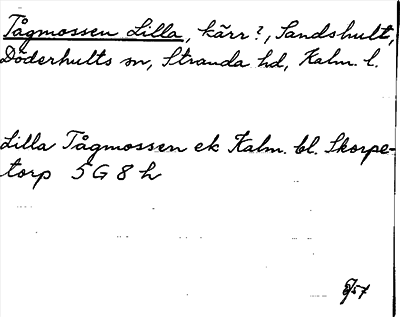 Tågmossen Lilla, kärr?, Sandshult,
Döderhults sn, Stranda hd, Kalm. l.
Lilla Tågmossen ek Kalm. bl. Skorpe=
torp 5G8h